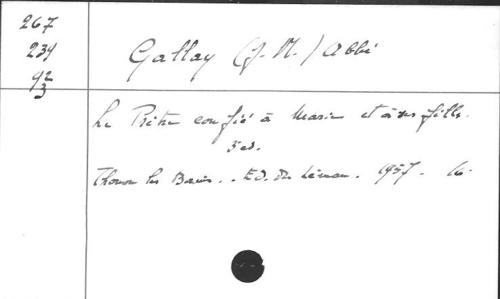 267
234
92
3
Gallay (J.-M.) Abbé
Le Prêtre confié à Marie et à ses filles.
3 ed.
Thonon les Bains. - Ed. du Léman. 1957. 16.